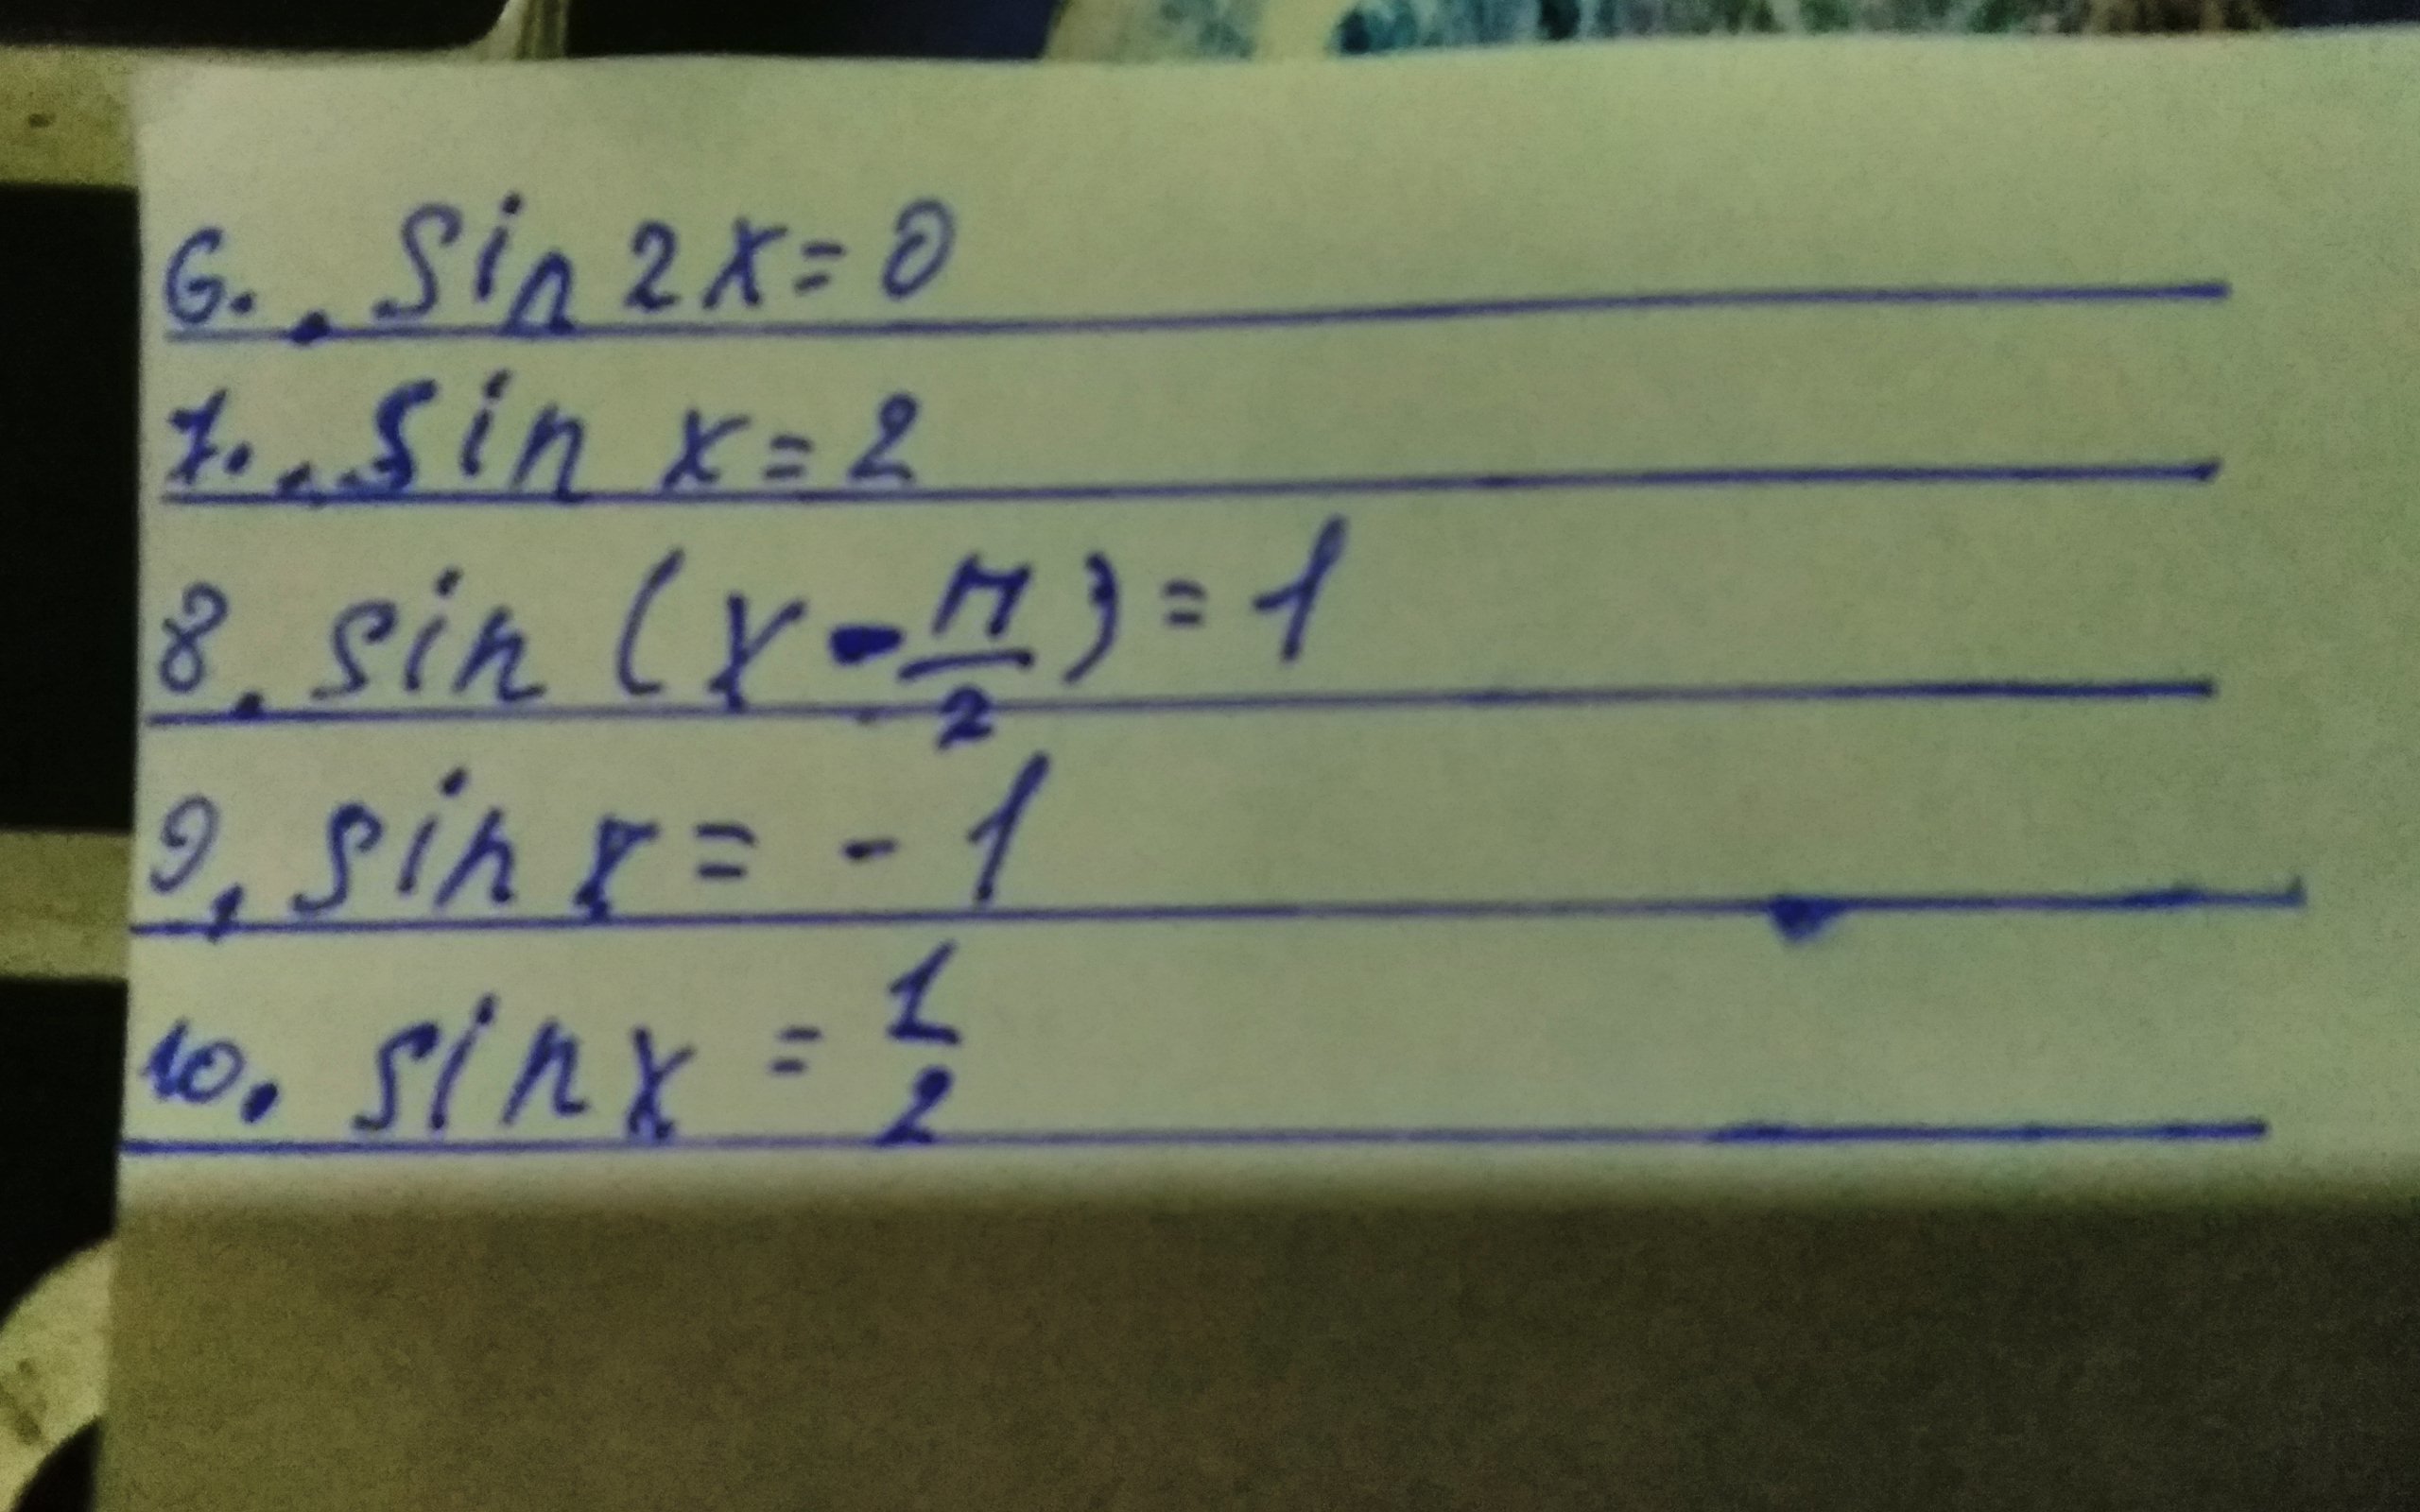 6. sin 2x = 0
7. sin x = 2
8. sin (x - π/2) = 1
9. sin x = - 1
10. sin x = 1/2